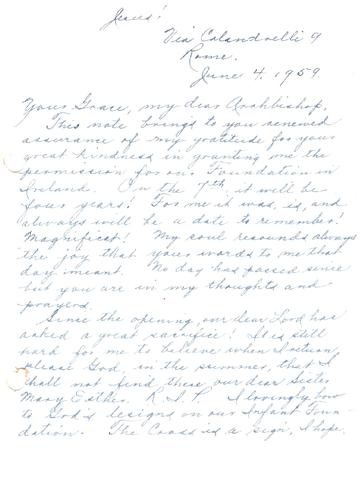 Jesus!
Via Calandrelli 9
Rome.
June 4, 1959.
Your Grace, my dear Archbishop,
This note brings to you renewed
assurance of my gratitude for your
great kindness in granting me the
permission for our Foundation in
Ireland. On the 7th, it will be
four years! For me it was, is, and
always will be a date to remember!
Magnificat! My soul resounds always
the joy that your words to me that
day meant. No day has passed since
but you are in my thoughts and
prayers.
Since the opening, our dear Lord has
asked a great sacrifice! It is still
hard for me to believe when I return
please God, in the summer, that I
shall not find there our dear Sister
Mary Esther. R.I.P. I lovingly bow
to God's designs on our Infant Foun-
dation. The Cross is a sign, I hope,